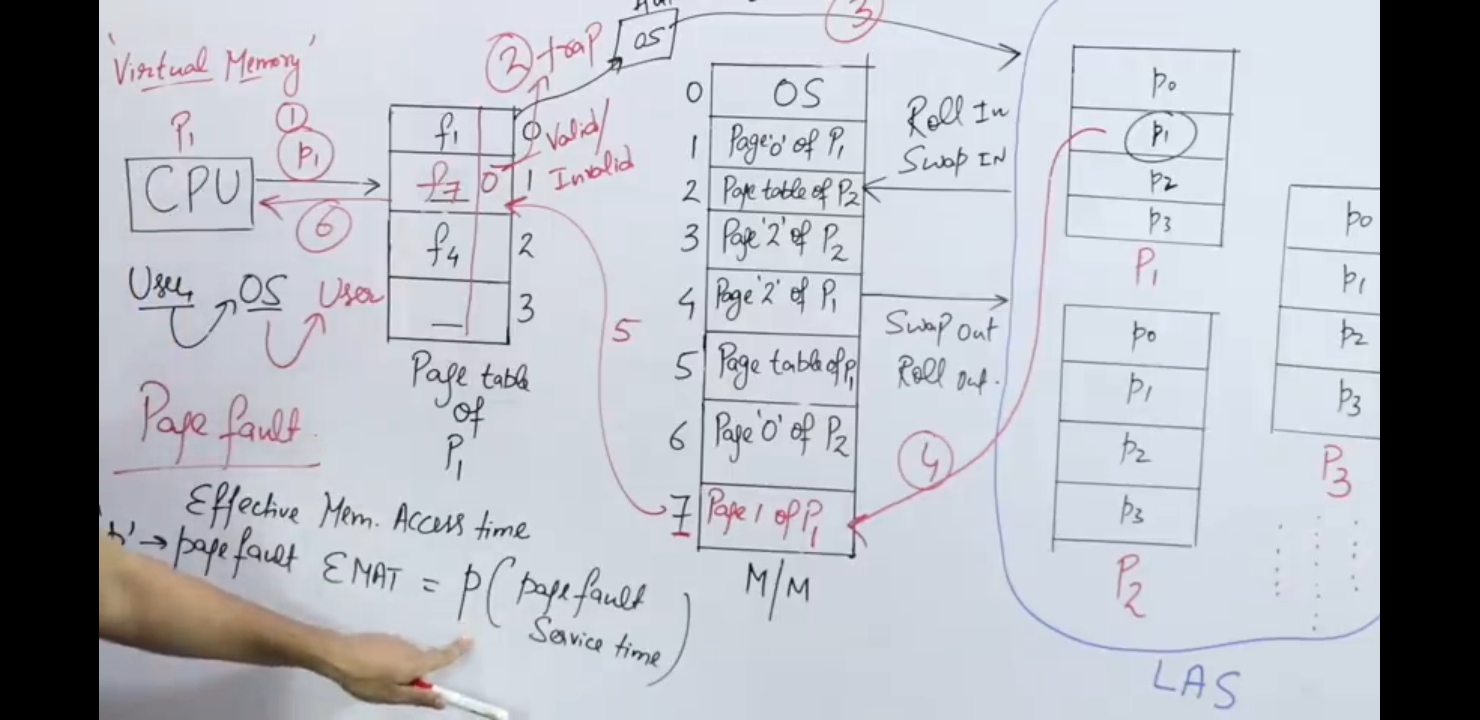 'Virtual Memory'
P1
CPU
1
p1
6
User OS User
Page fault
2 trap
OS
3
f1 0
f7 0 1
f4 2
— 3
Valid/
Invalid
Page table
of
P1
5
0 OS
1 Page'0' of P1
2 Page table of P2
3 Page '2' of P2
4 Page '2' of P1
5 Page table of P1
6 Page '0' of P2
7 Page 1 of P1
M/M
Roll In
Swap IN
Swap out
Roll out.
4
p0
p1
p2
p3
P1
p0
p1
p2
p3
P2
p0
p1
p2
p3
P3
LAS
Effective Mem. Access time
→ page fault EMAT = p(page fault
Service time)